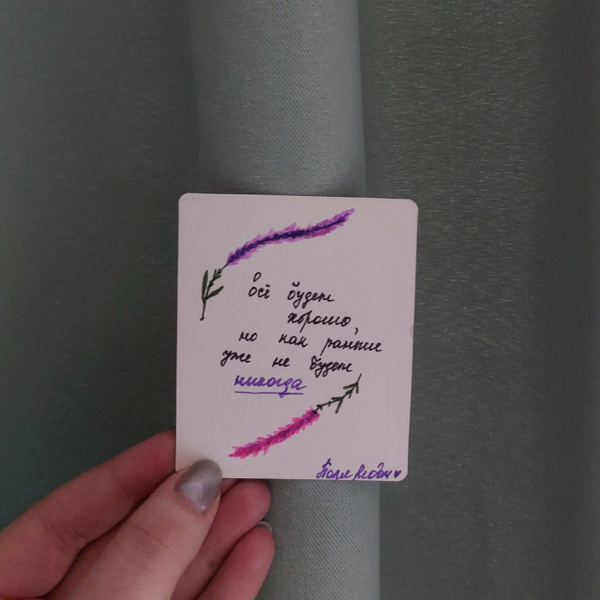 всё будет
хорошо,
но как раньше
уже не будет
никогда